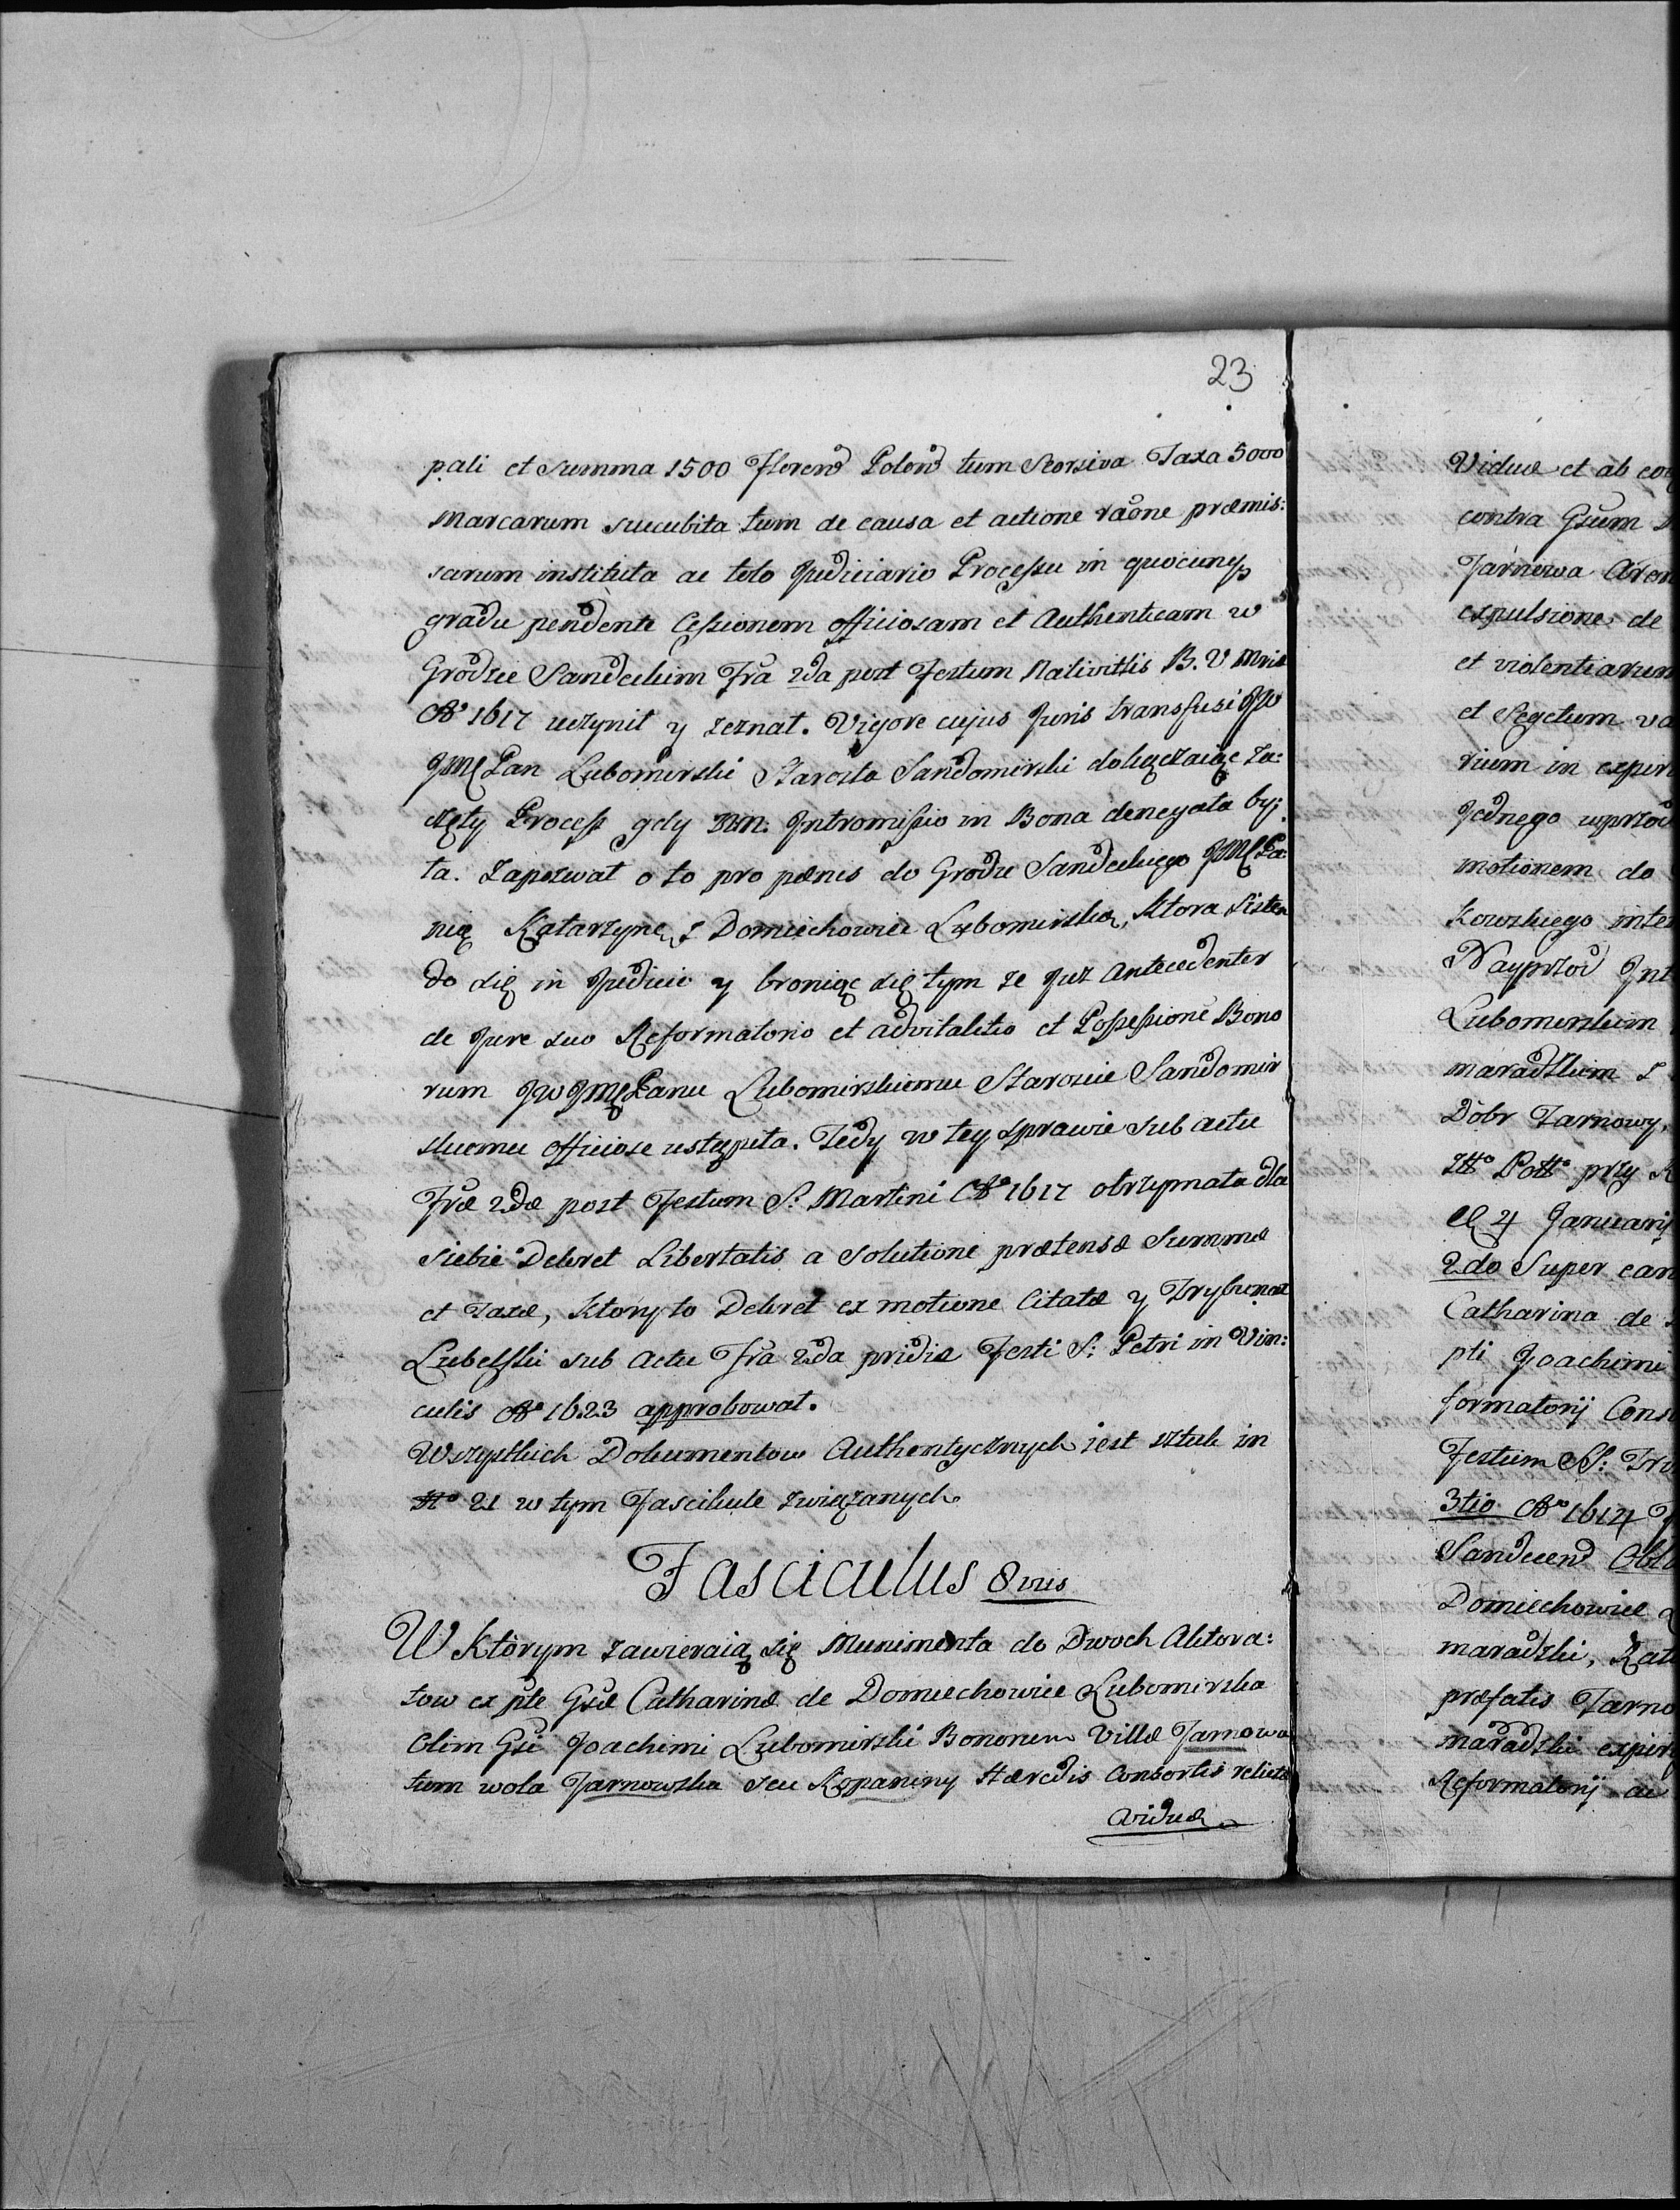 23
pali et summa 1500 Floren Polon tum Seorsiva Taxa 5000
Marcarum succubita tum de causa et actione raone præmis:
sarum instituta ac toto Judiciario Processu in quocunq
gradu pendente Cessionem officiosam et Authenticam w
Grodzie Sandeckim Fra 2da post Festum Nativittis B. V Mriæ
Ao 1617 uczynił y zeznał. Vigore cujus Juris transfusi JW
JMC Pan Lubomirski Starosta Sandomirski dokączaiąc za:
częty Process gdy Intromissio in Bona denegata by:
ła. Zapozwał o to pro pænis do Grodu Sandeckiego JMC Pa
nią Katarzynę z Domiechowic Lubomirską, Ktora Sisten
do się in Judicio y broniąc się tym ze Juz Antecedenter
de Jure suo Reformatorio et advitalitio et Possessione Bono
rum JW JMC Panu Lubomirskiemu Staroscie Sandomir
skiemu officiose ustąpiła. Tedy w tey sprawie sub actu
Fræ 2dæ post Festum S. Martini Ao 1617 otrzymała dla
siebie Dekret Libertatis a Solutione prætensæ Summæ
et Taxæ, Ktory to Dekret ex motione Citatæ y Trybunał
Lubelski sub Actu Fra 2da pridie Festi S: Petri in Vin:
culis Ao 1623 approbował.
Wszystkich Dokumentow Authentycznych iest sztuk in
No 21 w tym Fascikule związanych
Fasciculus 8vus
W Ktòrym zawieraią się Munimenta do Dwoch Aktora:
tow ex pte Gsæ Catharinæ de Domiechowice Lubomirska
Olim Gsi Joachimi Lubomirski Bonorum Villæ Jarnowa
tum wola Jarnowska seu Kopaniny Hæredis Consortis relictæ
Viduæ
Viduæ et ab
contra Gsum
Jarnowa
expulsione de
et violentiarum
et Segetum
rium in
Jednego
motionem do
kowskiego
Nayprzod
Lubomirskim
maradzkim
Dobr Jarnowy,
przy
4 Januarij
2do Super
Catharina de
pti Joachimi
formatorij
Festum SS:
3tio Ao 1614
Sandecen
Domiechowice
maradzki,
præfatis
maradzki
Reformatorij ac